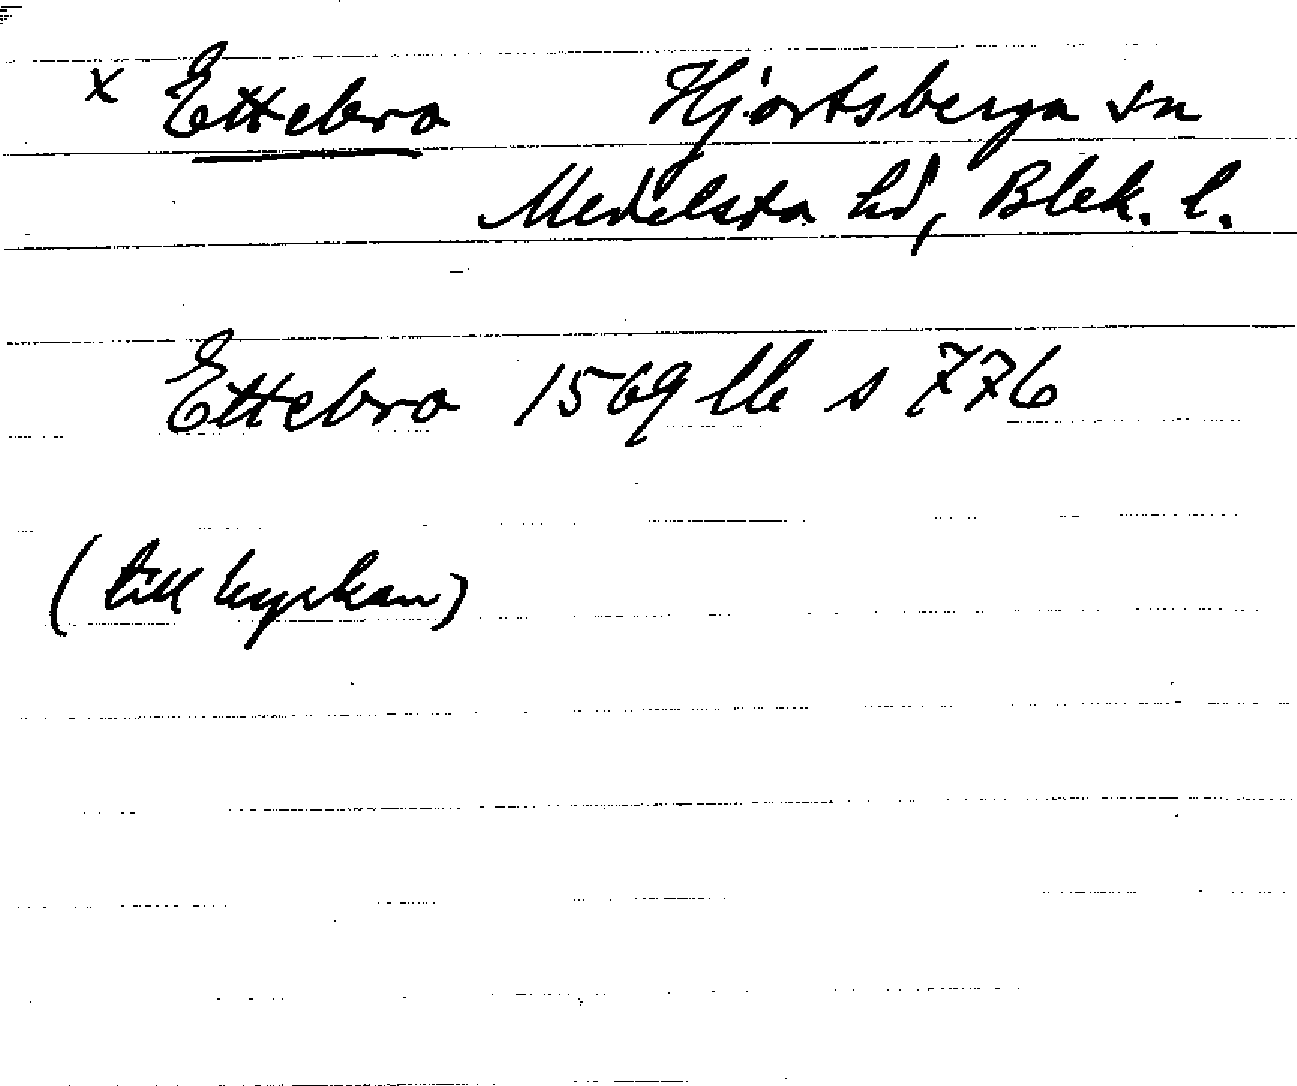 x Ettebro Hjortsberga sn
Medelsta hd, Blek. l.
Ettebro 1569 llb s 776
(till kyrkan)